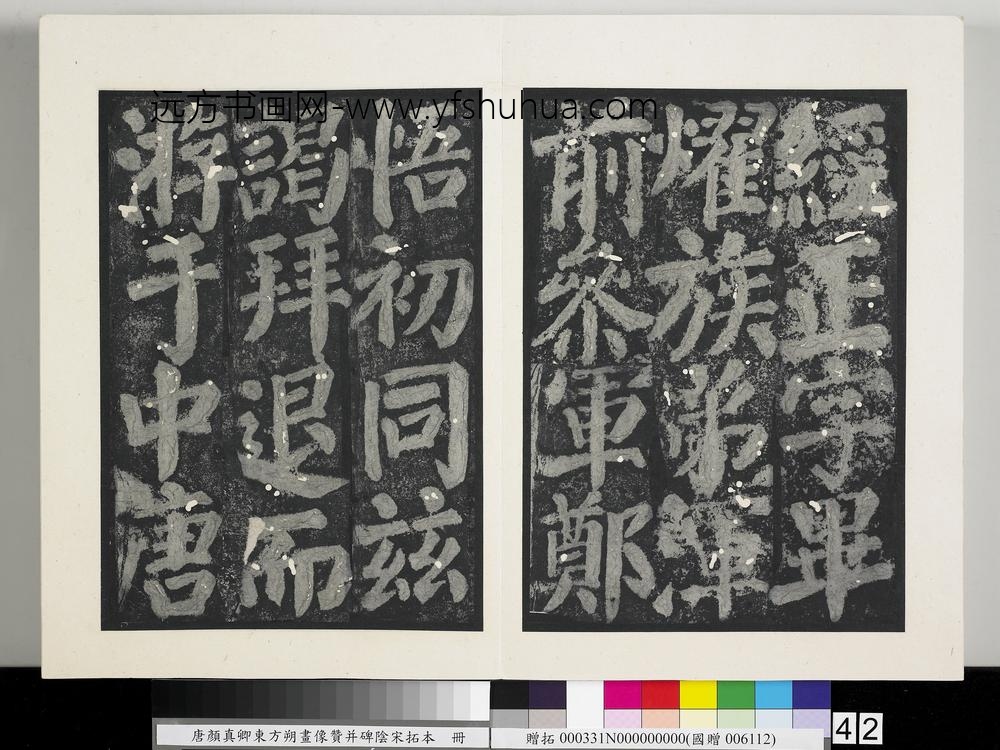 远方书画网-www.yfshuhua.com
經正字畢
耀族弟渾
前參軍鄭
悟初同茲
謁拜退而
游于中唐
唐顏真卿東方朔畫像贊并碑陰宋拓本 冊
贈拓 000331N000000000(國贈 006112)
42